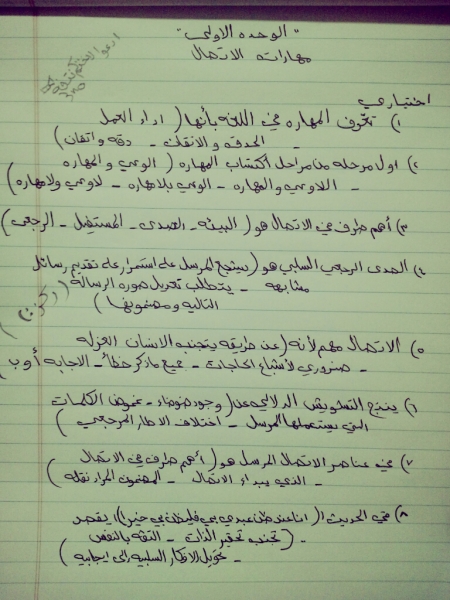 "الوحده الاولى"
مهارات الاتصال
اختياري
١) تعرف المهاره في اللغه بأنها ( اداء العمل
- الحدقه و الاتقان - دقه واتقان )
٢) اول مرحله من مراحل اكتساب المهاره ( الوعي و المهاره
- اللاوعي والمهاره - الوعي بلامهاره - لاوعي ولامهاره )
٣) أهم طرف في الاتصال هو ( البيئه - الصدى - المستقبل - الرجعي )
٤) الصدى الرجعي السلبي هو ( يشجع المرسل على استمرار على تقديم رسائل
مشابهه - يتطلب تعديل صوره الرسالة
التاليه ومضمونها )
٥) الاتصال مهم لأنه ( عن طريقه يتجنب الانسان العزله
- ضروري لأشباع الحاجات - جميع ماذكر خطأ - الاجابه أ و ب )
٦) ينتج التشويش الدلالي عن ( وجود ضوضاء - غموض الكلمات
التي يستعملها المرسل - اختلاف الاطار المرجعي )
٧) من عناصر الاتصال المرسل هو ( أهم طرف في الاتصال
- الذي يبداء الاتصال - المضمون المراد نقله )
٨) في الحديث ( انا عند ظن عبدي بي فليظن بي خيرا ) يقصد
( تجنب تحقير الذات - الثقه بالنفس
- تحويل الافكار السلبيه الى ايجابيه )